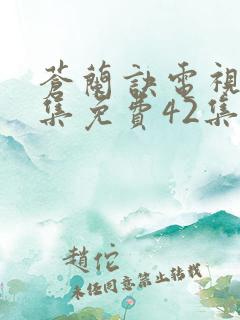 蒼蘭訣電視
集免費42集
趙佗
未經同意禁止轉載